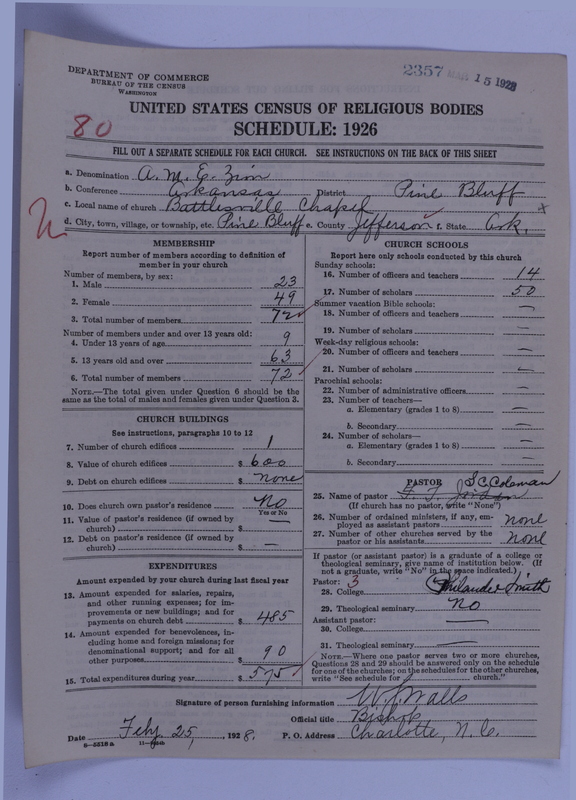 DEPARTMENT OF COMMERCE
BUREAU OF THE CENSUS
WASHINGTON
2357 MAR 15 1928
UNITED STATES CENSUS OF RELIGIOUS BODIES
SCHEDULE: 1926
80
FILL OUT A SEPARATE SCHEDULE FOR EACH CHURCH. SEE INSTRUCTIONS ON THE BACK OF THIS SHEET
a. Denomination A. M. E. Zion
b. Conference Arkansas District Pine Bluff
c. Local name of church Battlesville Chapel
d. City, town, village, or township, etc. Pine Bluff e. County Jefferson f. State Ark.
MEMBERSHIP
Report number of members according to definition of
member in your church
Number of members, by sex:
1. Male 23
2. Female 49
3. Total number of members 72
Number of members under and over 13 years old:
4. Under 13 years of age 9
5. 13 years old and over 63
6. Total number of members 72
NOTE.—The total given under Question 6 should be the
same as the total of males and females given under Question 3.
CHURCH BUILDINGS
See instructions, paragraphs 10 to 12
7. Number of church edifices 1
8. Value of church edifices $ 600
9. Debt on church edifices $ none
10. Does church own pastor's residence No
Yes or No
11. Value of pastor's residence (if owned by
church) $ —
12. Debt on pastor's residence (if owned by
church) $ —
EXPENDITURES
Amount expended by your church during last fiscal year
13. Amount expended for salaries, repairs,
and other running expenses; for im-
provements or new building; and for
payments on church debt $ 485
14. Amount expended for benevolences, in-
cluding home and foreign missions; for
denominational support; and for all
other purposes $ 90
15. Total expenditures during year $ 575
CHURCH SCHOOLS
Report here only schools conducted by this church
Sunday schools:
16. Number of officers and teachers 14
17. Number of scholars 50
Summer vacation Bible schools:
18. Number of officers and teachers —
19. Number of scholars —
Week-day religious schools:
20. Number of officers and teachers —
21. Number of scholars —
Parochial schools:
22. Number of administrative officers —
23. Number of teachers—
a. Elementary (grades 1 to 8) —
b. Secondary —
24. Number of scholars—
a. Elementary (grades 1 to 8) —
b. Secondary —
PASTOR S C Coleman
25. Name of pastor
(If church has no pastor, write "None")
26. Number of ordained ministers, if any, em-
ployed as assistant pastors none
27. Number of other churches served by the
pastor or his assistants none
If pastor (or assistant pastor) is a graduate of a college or
theological seminary, give name of institution below. (If
not a graduate, write "No" in the space indicated.)
Pastor: 3
28. College Philander Smith
29. Theological seminary No
Assistant pastor:
30. College —
31. Theological seminary —
NOTE.—Where one pastor serves two or more churches,
Questions 28 and 29 should be answered only on the schedule
for one of the churches; on the schedules for the other churches,
write "See schedule for church."
Signature of person furnishing information W J Walls
Official title Bishop
Date Feby 25, 1928. P. O. Address Charlotte, N. C.
8-5518 a